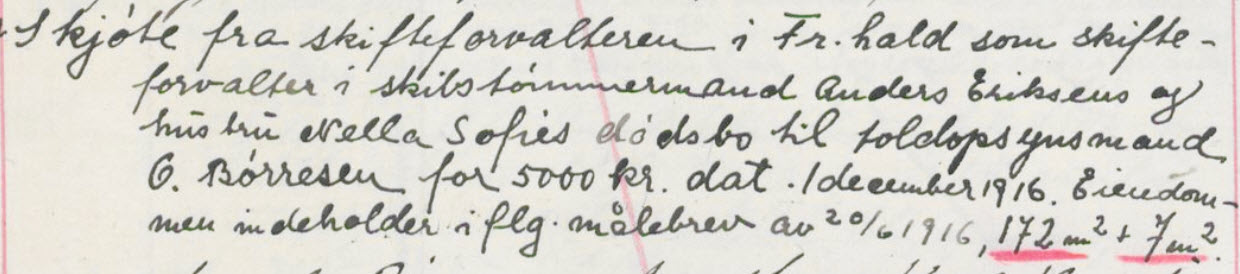 Skjøte fra skifteforvalteren i Fr.hald som skifte-
forvalter i skibstømmermand Anders Eriksens og
hustru Nella Sofies dødsbo til toldopsynsmand
O. Børresen for 5000 kr. dat. 1 december 1916. Eiendom-
men indeholder i flg. målebrev av 20/6 1916, 172 m² + 7 m².